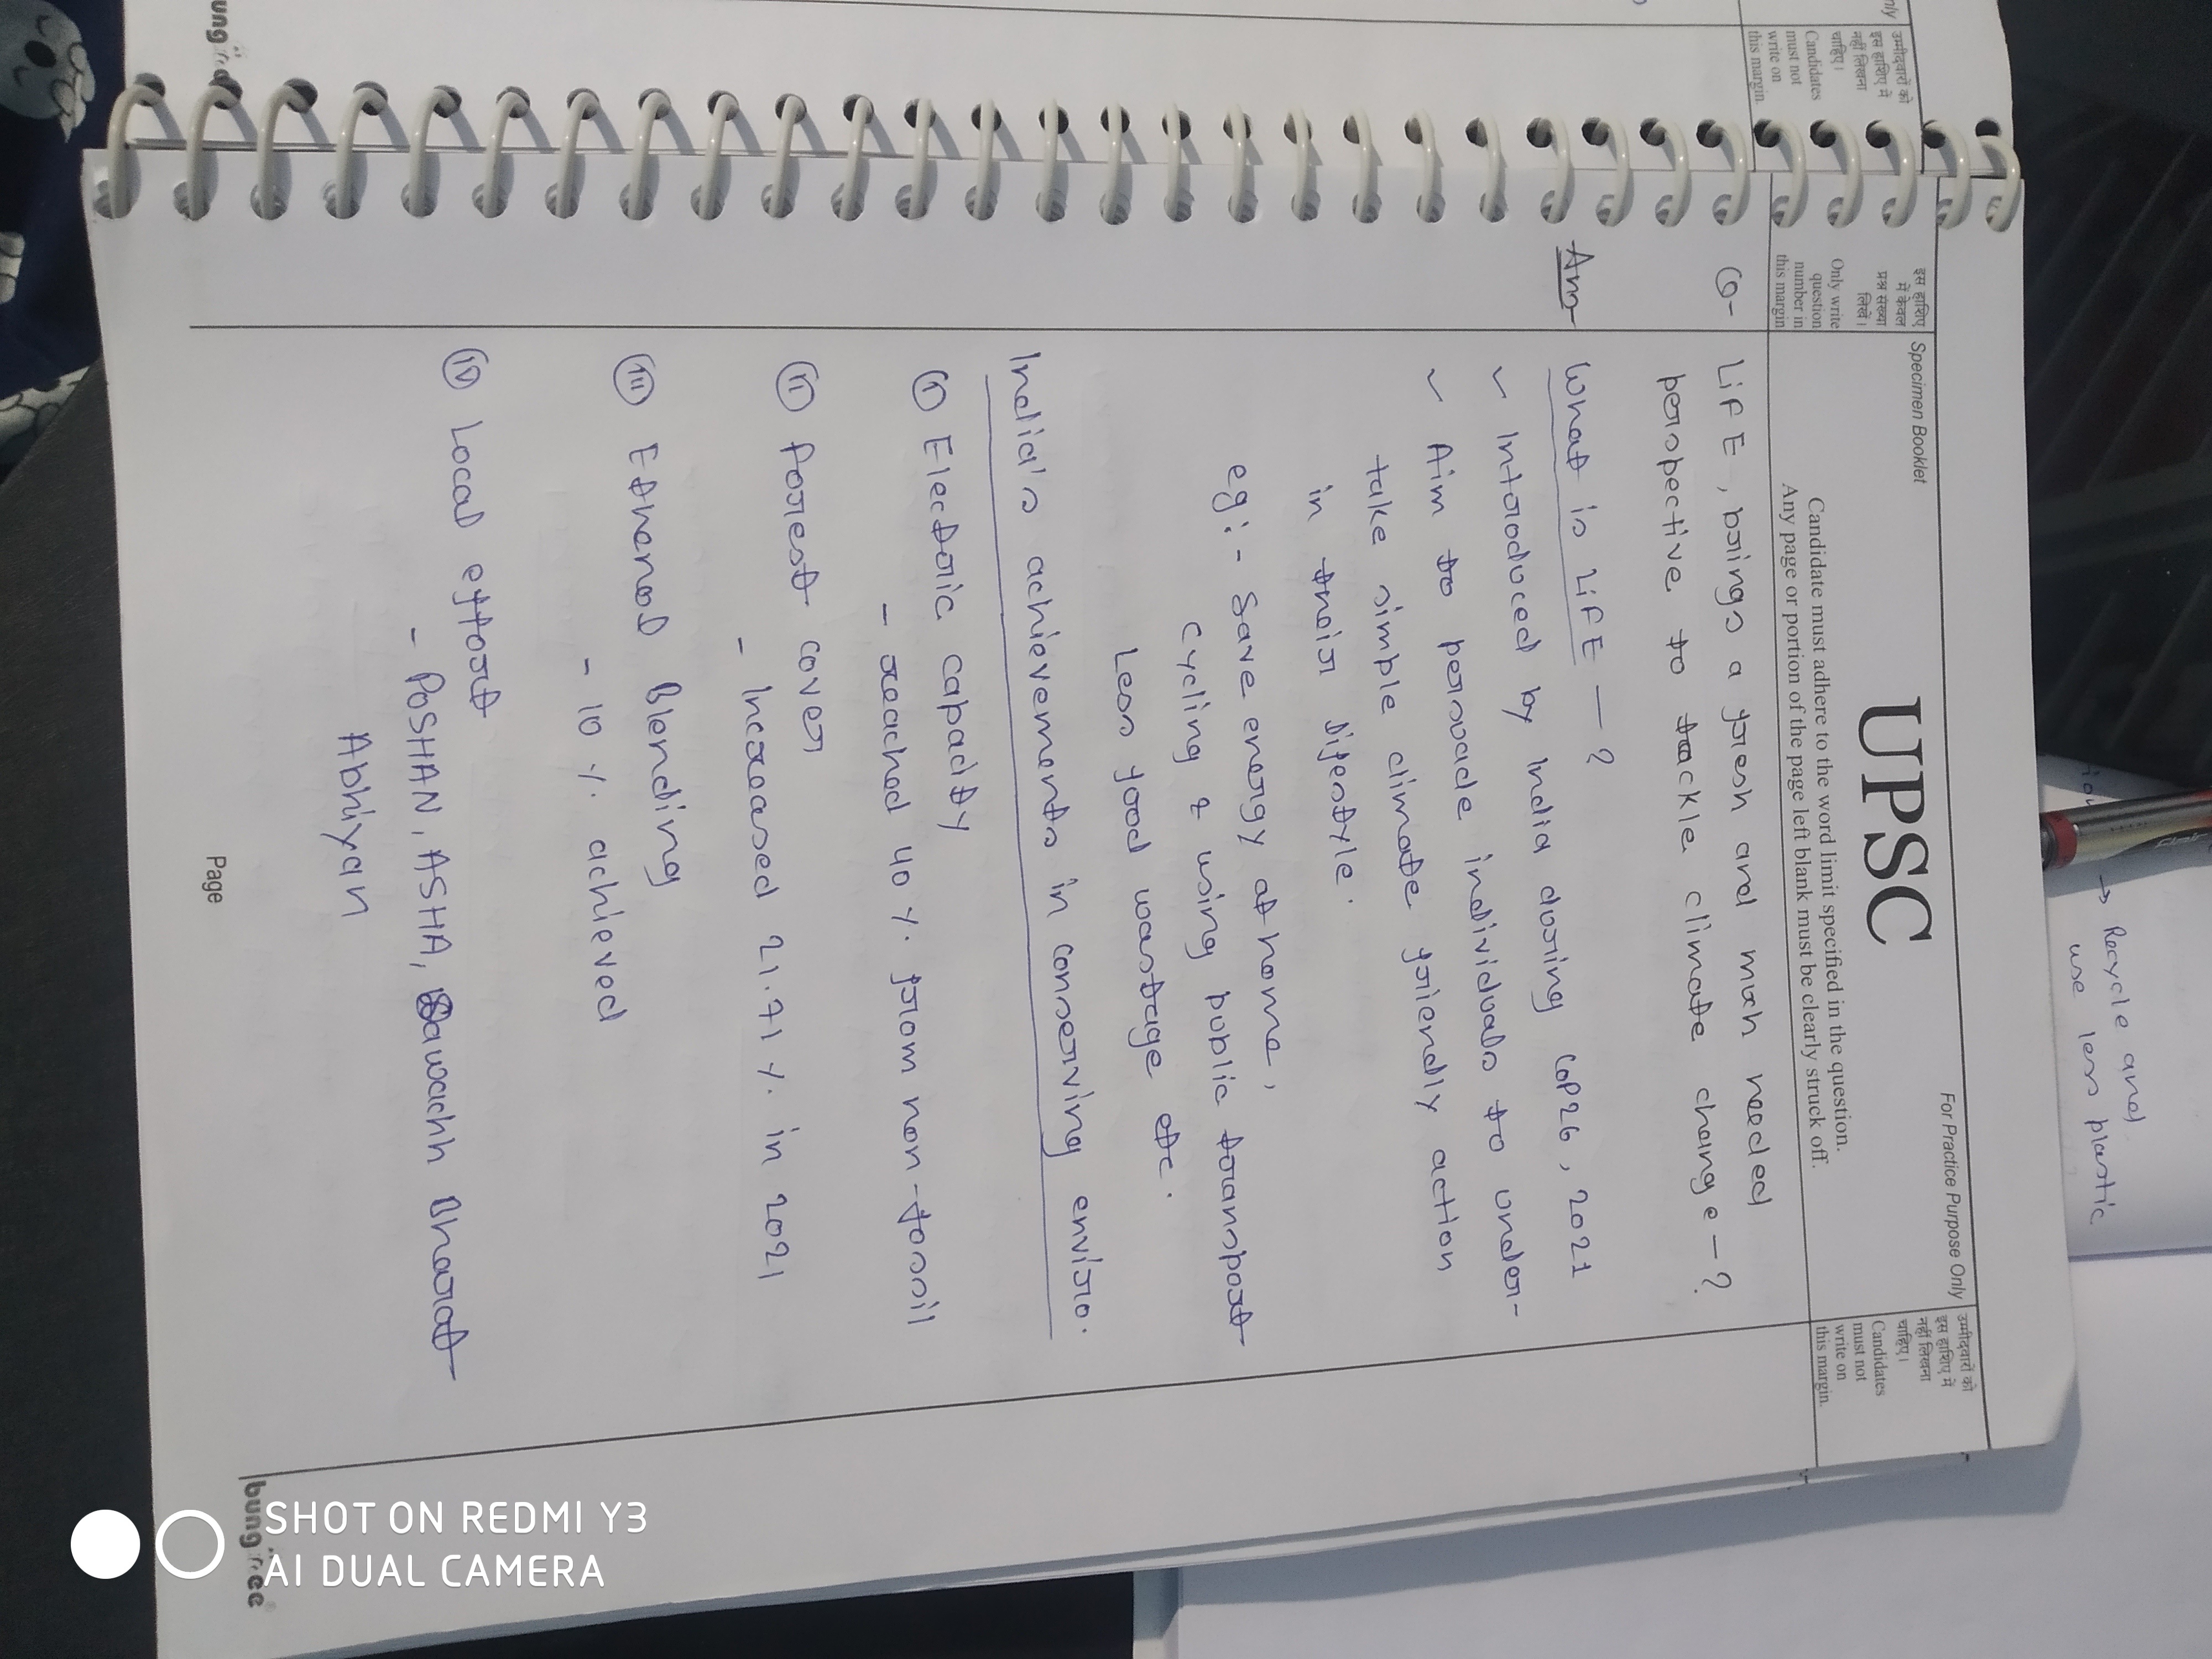 उम्मीदवारों को
इस हाशिए में
नहीं लिखना
चाहिए।
Candidates
must not
write on
this margin.
Specimen Booklet
For Practice Purpose Only
UPSC
Candidate must adhere to the word limit specified in the question.
Any page or portion of the page left blank must be clearly struck off.
इस हाशिए
में केवल
प्रश्न संख्या
लिखें।
Only write
question
number in
this margin
उम्मीदवारों को
इस हाशिए में
नहीं लिखना
चाहिए।
Candidates
must not
write on
this margin.
Q- LiFE, brings a fresh and much needed
perspective to tackle climate change - ?
Ans What is LiFE - ?
Introduced by India during COP26, 2021
Aim to persuade individuals to under-
take simple climate friendly action
in their lifestyle.
eg:- Save energy at home,
cycling & using public transport
Less food wastage etc.
India's achievements in conserving enviro.
(i) Electric capacity
- reached 40 %. from non-fossil
(ii) forest cover
- Increased 21.71 %. in 2021
(iii) Ethanol Blending
- 10 %. achieved
(iv) Local effort
- POSHAN, ASHA, Swachh Bharat
Abhiyan
Page
→ Recycle and
use less plastic
bungree
SHOT ON REDMI Y3
AI DUAL CAMERA